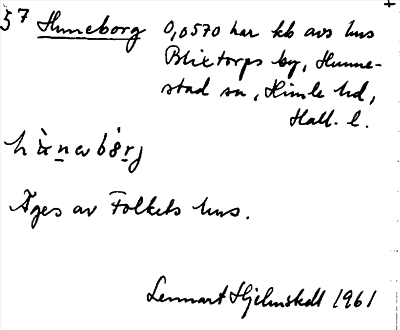 5⁷ Hunneborg 0,0570 har kb avs hus
Blixtorps by, Hunne-
stad sn, Himle hd,
Hall. l.
Äges av Folkets hus.
Lennart Hjelmstedt 1961